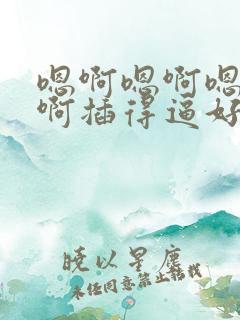 嗯啊嗯啊嗯
啊插得逼好
晓以星尘
未经同意禁止转载